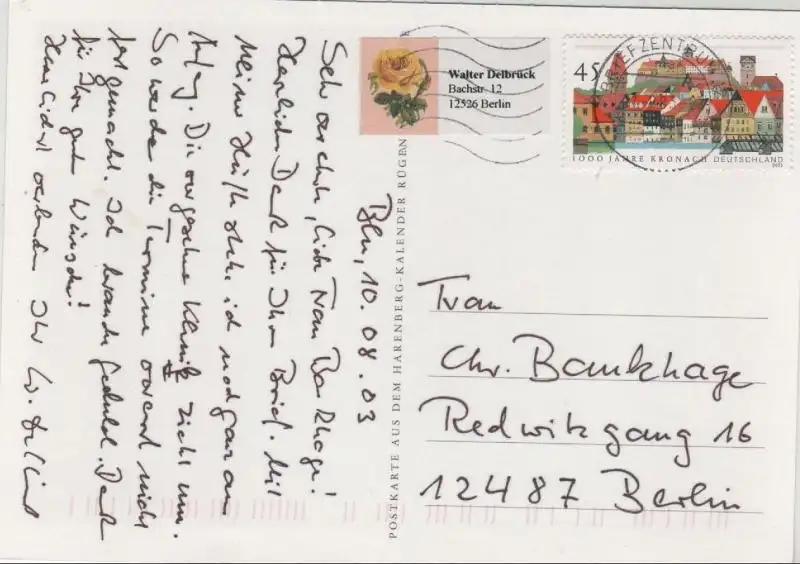 Walter Delbrück
Bachstr. 12
12526 Berlin
BRIEFZENTRUM
45
1000 JAHRE KRONACH DEUTSCHLAND
2003
Bln, 10.08.03
Sehr verehrte, liebe Frau Bankhage!
Herzlichen Dank für Ihren Brief. Mit
meiner Hüfte stehe ich noch ganz am
Anfang. Die vorgesehene Klinik zieht um.
So werden die Termine vorerst nicht
fest gemacht. Ich brauche Geduld. Dank
für Ihre guten Wünsche!
Herzlichst verbunden Ihr W. Delbrück
POSTKARTE AUS DEM HARENBERG-KALENDER RÜGEN
Frau
Chr. Bankhage
Redwitzgang 16
12487 Berlin